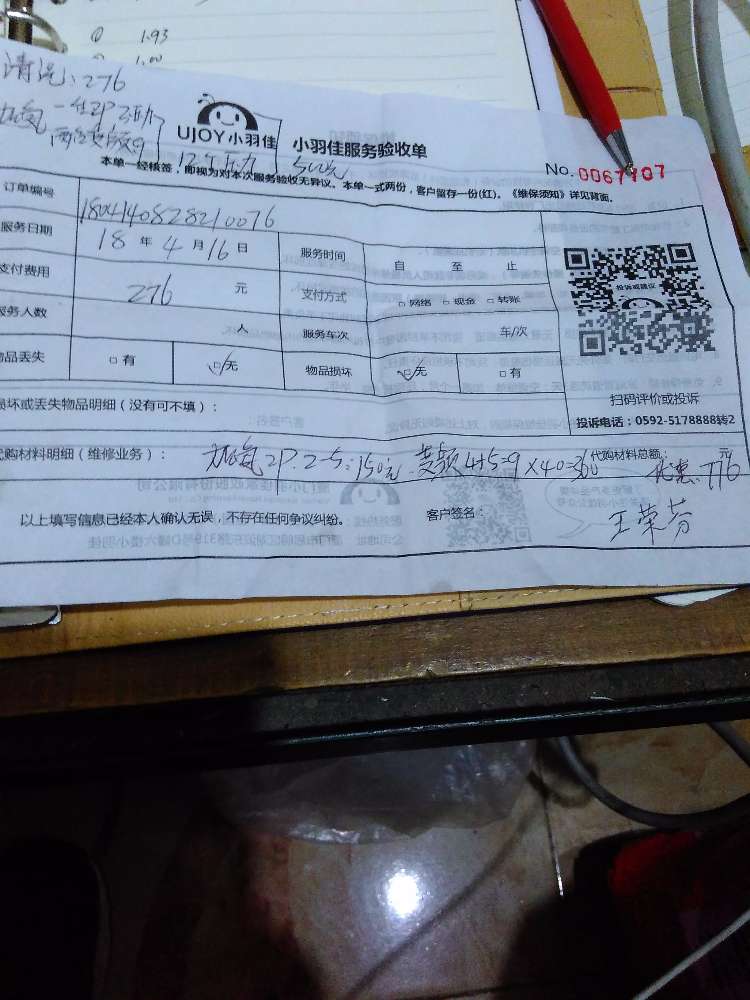 1.93
1.00
清洗：276
加氟 一台2P 2.5压力
两台变频9
12个压力 500元
UJOY小羽佳 小羽佳服务验收单
No. 0067707
本单一经核签，即视为对本次服务验收无异议。本单一式两份，客户留存一份(红)。《维保须知》详见背面。
订单编号 1804140828210076
服务日期 18 年 4 月 16 日 服务时间 自 至 止
支付费用 276 元 支付方式 □网络 □现金 □转账
服务人数 人 服务车次 车/次
物品丢失 □有 □无 物品损坏 □无 □有
投诉或建议
扫码评价或投诉
投诉电话：0592-5178888转2
损坏或丢失物品明细（没有可不填）：
代购材料明细（维修业务）： 加氟2P.2-5=150元 变频4+5=9×40=360 代购材料总额： 元
优惠.776
以上填写信息已经本人确认无误，不存在任何争议纠纷。 客户签名： 王荣芬